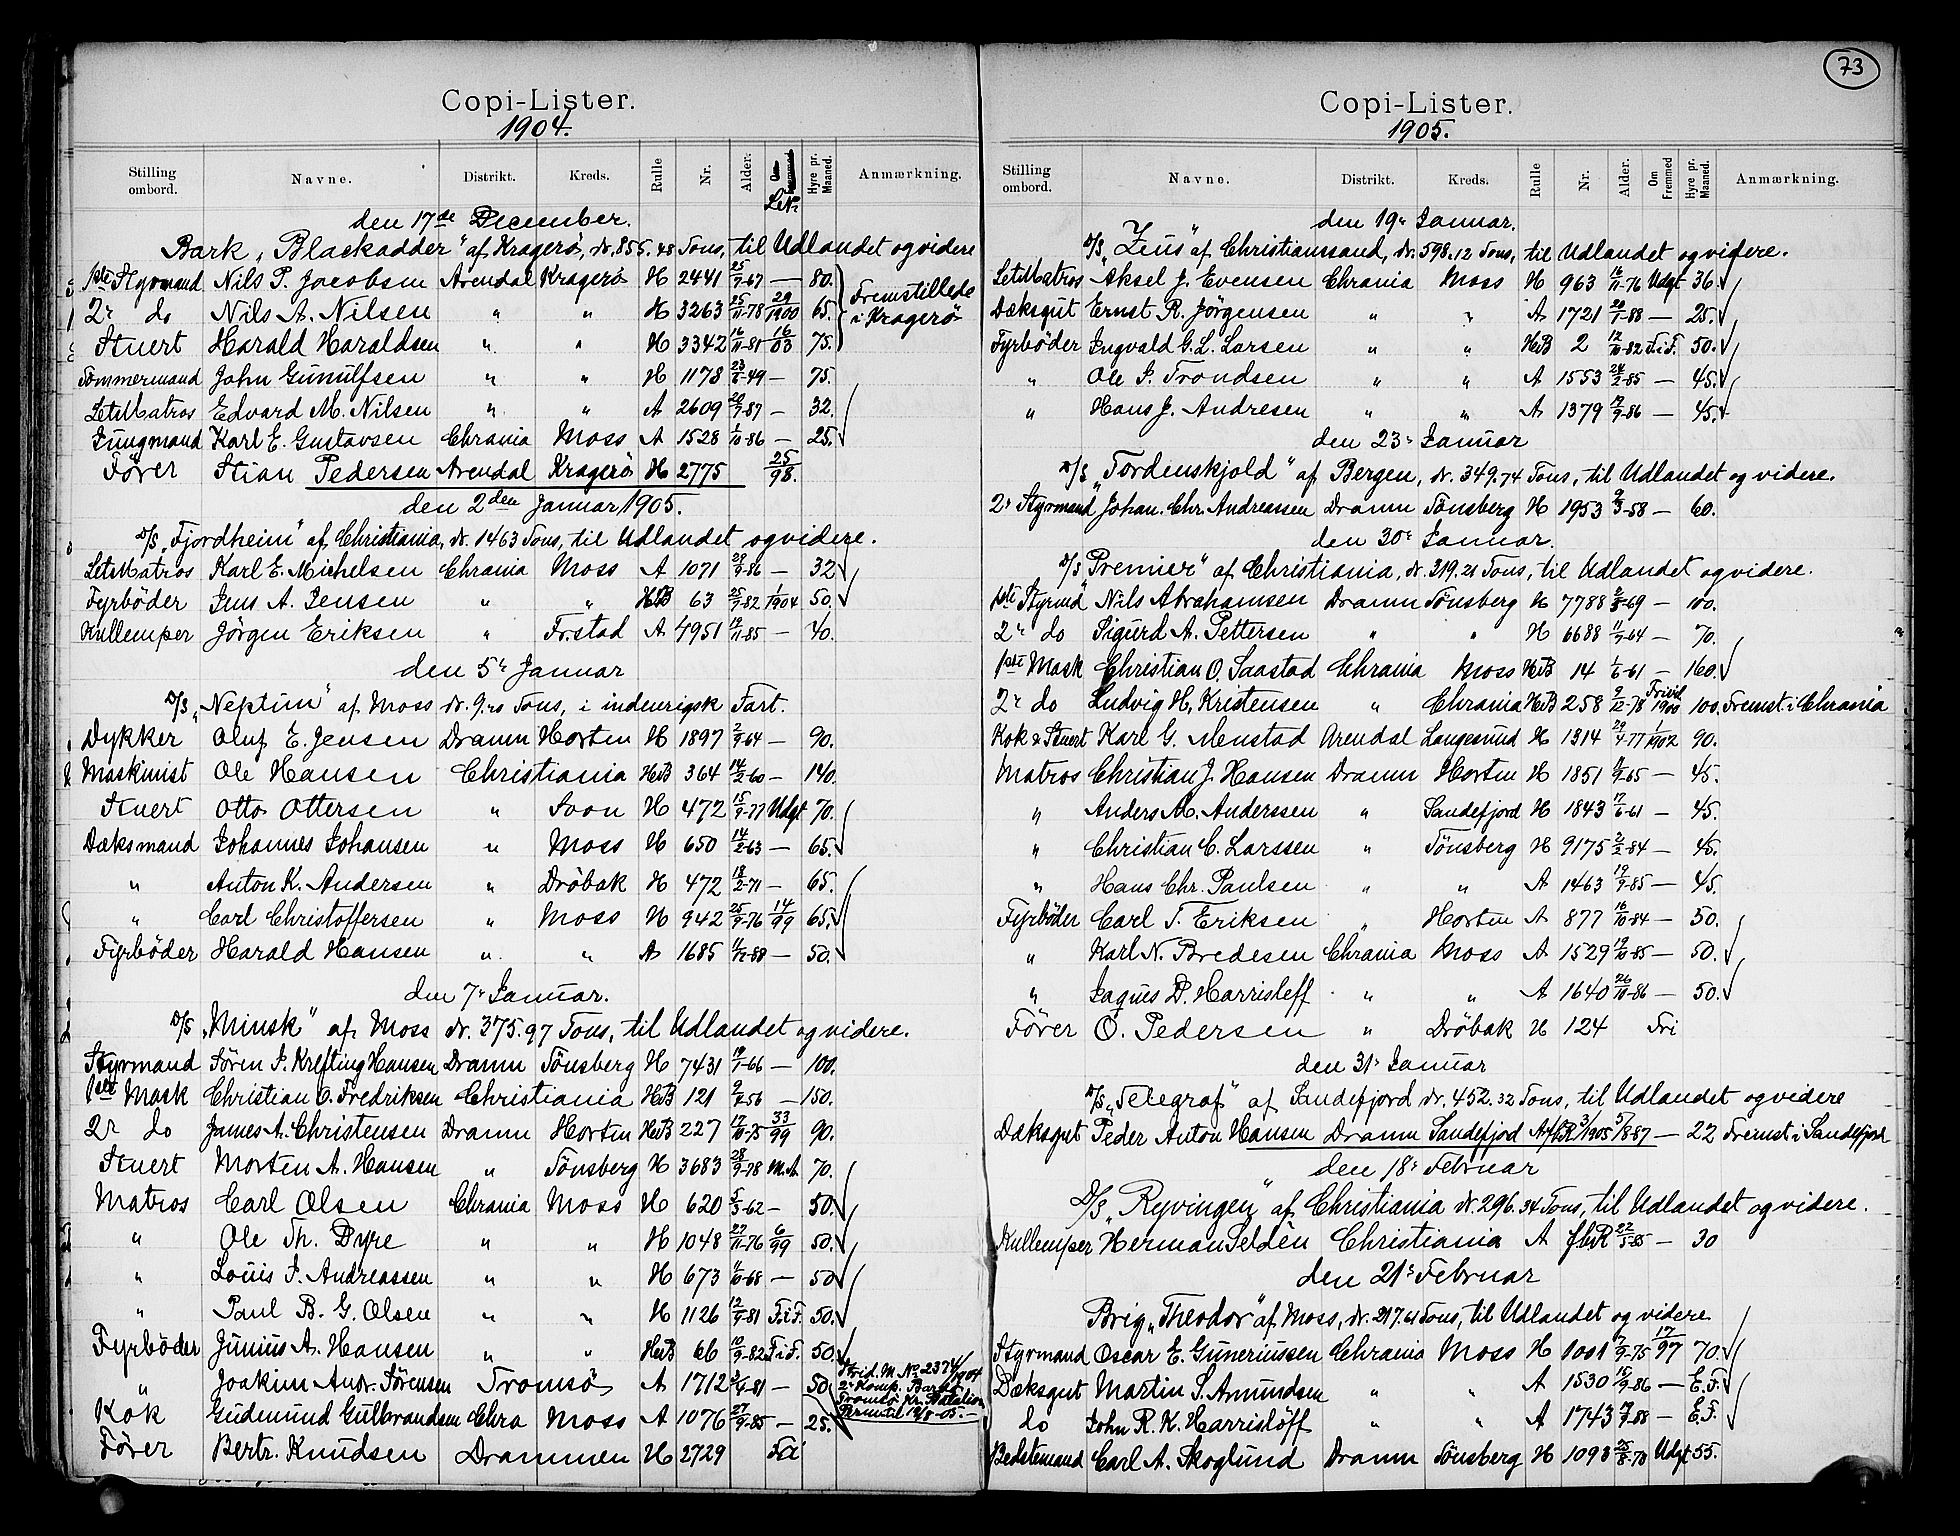 Copi-Lister.
1904.
Stilling ombord. Navne. Distrikt. Kreds. Rulle Nr. Alder. Hyre pr. Maaned. Anmærkning.
den 17de December.
Bark „Blackadder" af Kragerø, dr. 855.48 Tons, til Udlandet og videre
1ste Styrmand Nils P. Jacobsen Arendal Kragerø H 2441 25/9-67 — 80. Fremstillede
2r do Nils A. Nilsen " " H 3263 25/11-78 29/1900 65. i Kragerø
Stuert Harald Haraldsen " " H 3342 16/11-81 16/03 75.
Tømmermand John Gunulfsen " " H 1178 23/6-49 — 75.
LetMatros Edvard M. Nilsen " " A 2609 20/9-87 — 32.
Jungmand Karl E. Gustavsen Chrania Moss A 1528 1/10-86 — 25.
Fører Stian Pedersen Arendal Kragerø H 2775 25/98.
den 2den Januar 1905.
D/S „Fjordheim" af Christiania, dr. 1463 Tons, til Udlandet og videre.
LetMatros Karl E. Michelsen Chrania Moss A 1071 28/9-86 — 32
Fyrbøder Jens A. Jensen " " HB 63 25/9-82 1/1904 50.
Kullemper Jörgen Eriksen " Fr.stad A 4951 19/11-85 — 40.
den 5r Januar
D/S „Neptun" af Moss dr. 9. Tons, i indenrigsk Fart.
Dykker Oluf E. Jensen Dramn Horten H 1897 2/9-64 — 90.
Maskinist Ole Hansen Christiania HB 364 14/2-60 — 140.
Stuert Otto Ottersen " Svon H 472 15/9-77 Udgt 70.
Dæksmand Johannes Johansen " Moss H 650 14/2-63 — 65.
" Anton K. Andersen " Drøbak H 472 18/2-71 — 65.
" Carl Christoffersen " Moss H 942 25/9-76 14/99 65.
Fyrbøder Harald Hansen " " A 1685 4/12-88 — 50.
den 7r Januar.
D/S „Minsk" af Moss dr. 375.97 Tons, til Udlandet og videre.
Styrmand Sören J. Krefting Hansen Dramn Tönsberg H 7431 19/1-66 — 100.
1ste Mask Christian O. Fredriksen Christiania HB 121 9/2-56 — 150.
2r do James A. Christensen Dramn Horten HB 227 17/10-75 33/99 90.
Stuert Morten A. Hansen " Tönsberg H 3683 28/9-78 M.A 70.
Matros Carl Olsen Chrania Moss H 620 5/3-62 — 50.
" Ole Th. Dyre " " H 1048 27/11-76 6/99 50.
" Louis J. Andreassen " " H 673 4/10-68 — 50
" Paul B. G. Olsen " " H 1126 12/9-81 F.i F. 50.
Fyrbøder Junius A. Hansen " " HB 66 10/9-82 F.i F. 50.
" Joakim Andr. Sörensen Tromsø A 1712 3/4-81 — 50. Strid. M. No 2374/1904 2 Komp. Bardo
Kok Gudmund Gulbrandsen Chra Moss A 1076 27/9-85 — 25. Tromsø Kr. Bataljon Permtil 19/8-05.
Fører Bertr. Knudsen Drammen H 2729 Fri
73
Copi-Lister.
1905.
Stilling ombord. Navne. Distrikt. Kreds. Rulle Nr. Alder. Om Fremmed Hyre pr. Maaned. Anmærkning.
den 19r Januar.
D/S „Zeus" af Christianssand, dr. 598.12 Tons, til Udlandet og videre.
LetMatros Aksel J. Evensen Chrania Moss H 963 16/11-76 Udgt 36.
Dæksgut Ernst R. Jörgensen " " A 1721 20/1-88 — 25.
Fyrbøder Ingvald G. L. Larsen " " HB 2 12/10-82 F.i F. 50.
" Ole J. Trondsen " " A 1553 24/2-85 — 45.
" Hans J. Andresen " " A 1379 17/9-86 — 45.
den 23r Januar
D/S „Tordenskjold" af Bergen, dr. 349.74 Tons, til Udlandet og videre.
2r Styrmand Johan. Chr. Andreassen Dramn Tönsberg H 1953 9/3-58 — 60.
den 30r Januar.
D/S „Premier" af Christiania, dr. 319.21 Tons, til Udlandet og videre.
1ste Styrmd Nils Abrahamsen Dramn Tönsberg H 7788 2/8-69 — 100.
2r do Sigurd A. Pettersen " " H 6688 11/9-64 — 70.
1ste Mask Christian O. Saastad Chrania Moss HB 14 1/6-61 — 160
2r do Ludvig H. Kristensen " Chrania HB 258 9/12-78 Frivil 1900 100. Fremst. i Chrania
Kok & Stuert Karl G. Menstad Arendal Langesund H 1314 29/4-77 1/1902 90.
Matros Christian J. Hansen Dramn Horten H 1851 11/9-65 — 45.
" Anders M. Anderssen " Sandefjord H 1843 17/6-61 — 45.
" Christian C. Larssen " Tönsberg H 9175 2/2-84 — 45.
" Hans Chr. Paulsen " " A 1463 19/9-85 — 45.
Fyrbøder Carl T. Eriksen " Horten A 877 16/10-84 — 50.
" Karl N. Bredesen Chrania Moss A 1529 19/10-85 — 50.
" Jaques D. Harrisleff " " A 1640 26/10-86 — 50.
Fører O. Pedersen " Drøbak H 124 Fri
den 31r Januar
D/S „Telegraf" af Sandefjord dr. 452.32 Tons, til Udlandet og videre
Dæksgut Peder Anton Hansen Dramn Sandefjord A fbR 3/1905 5/8-87 — 22 Fremst i Sandefjord
den 18r Februar
D/S „Ryvingen" af Christiania dr. 296.34 Tons, til Udlandet og videre.
Kullemper Herman Seldén Christiania A fbR 22/5-85 — 30
den 21r Februar
Brig „Theodor" af Moss, dr. 217.61 Tons, til Udlandet og videre
Styrmand Oscar E. Guneriussen Chrania Moss H 1001 7/9-75 17/97 70.
Dæksgut Martin S. Amundsen " " A 1530 15/9-86 — E.F.
do John R. K. Harrislöff " " A 1743 19/9-88 — E.F.
Bedstemand Carl A. Skoglund Dramn Tönsberg H 1098 25/8-70 Udgt 55.